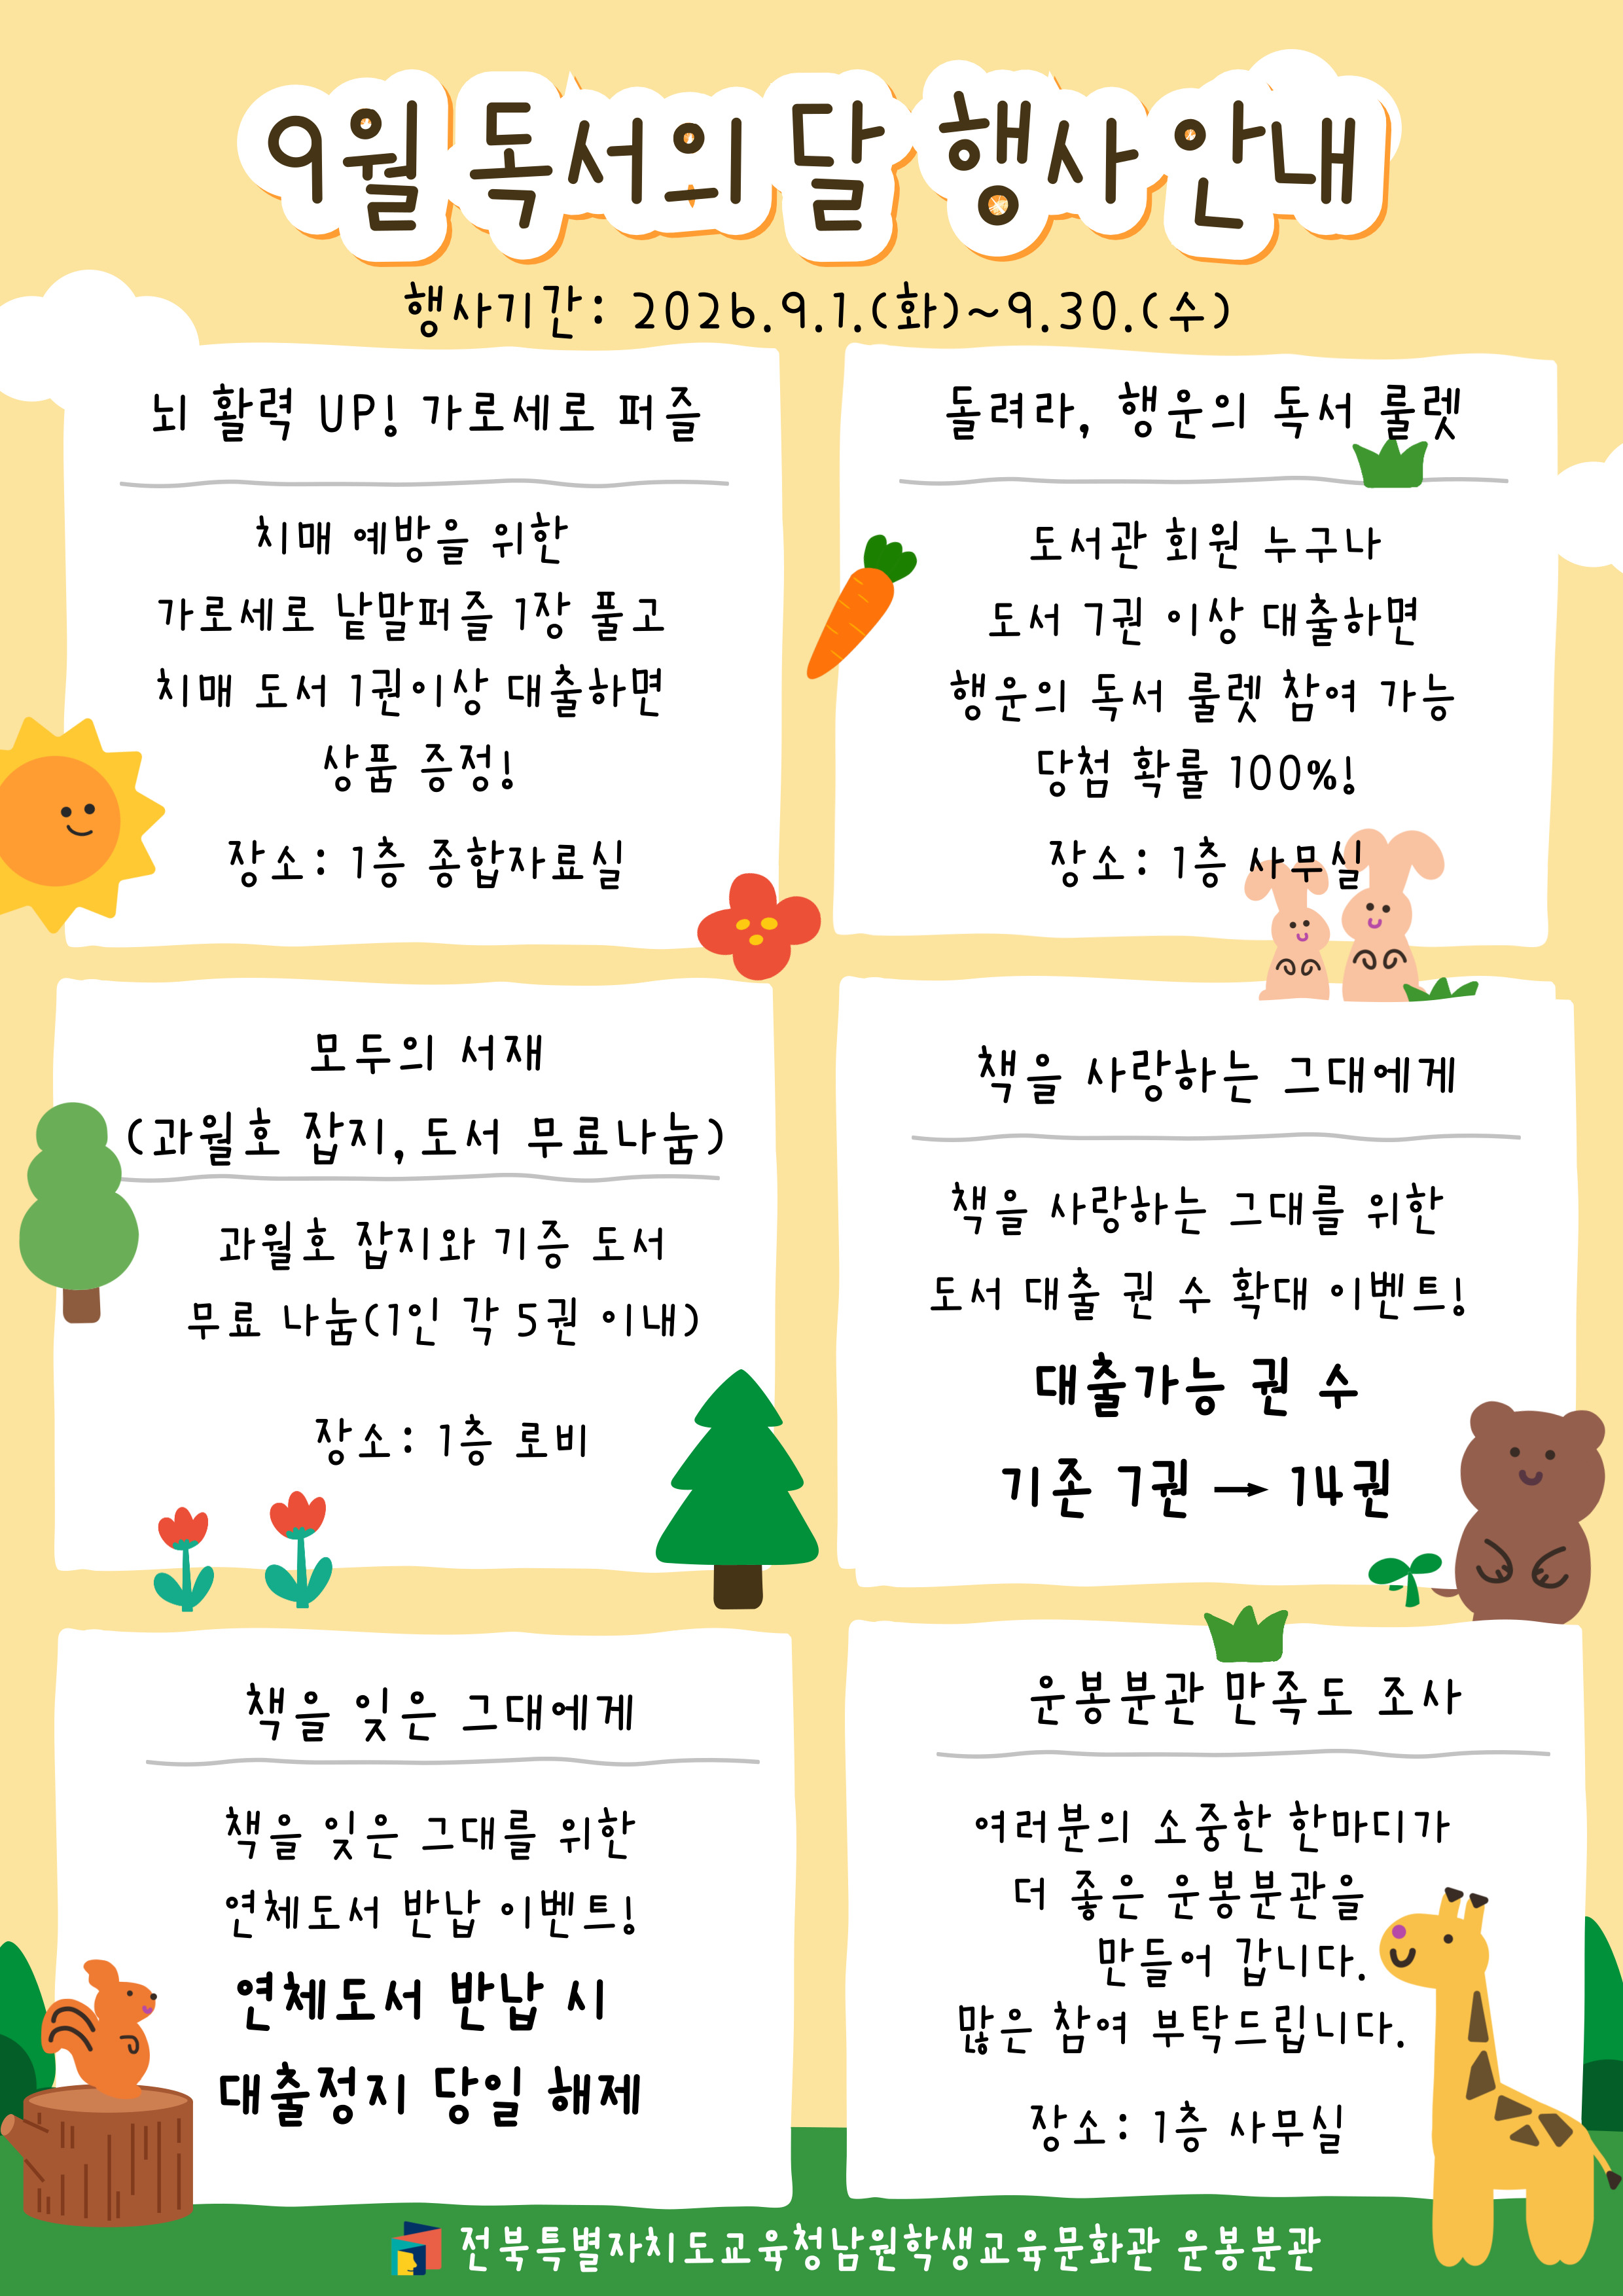 9월 독서의 달 행사 안내
행사기간: 2026.9.1.(화)~9.30.(수)
뇌 활력 UP! 가로세로 퍼즐
치매 예방을 위한
가로세로 낱말퍼즐 1장 풀고
치매 도서 1권이상 대출하면
상품 증정!
장소: 1층 종합자료실
돌려라, 행운의 독서 룰렛
도서관 회원 누구나
도서 7권 이상 대출하면
행운의 독서 룰렛 참여 가능
당첨 확률 100%!
장소: 1층 사무실
모두의 서재
(과월호 잡지, 도서 무료나눔)
과월호 잡지와 기증 도서
무료 나눔(1인 각 5권 이내)
장소: 1층 로비
책을 사랑하는 그대에게
책을 사랑하는 그대를 위한
도서 대출 권 수 확대 이벤트!
대출가능 권 수
기존 7권 → 14권
책을 잊은 그대에게
책을 잊은 그대를 위한
연체도서 반납 이벤트!
연체도서 반납 시
대출정지 당일 해제
운봉분관 만족도 조사
여러분의 소중한 한마디가
더 좋은 운봉분관을
만들어 갑니다.
많은 참여 부탁드립니다.
장소: 1층 사무실
전북특별자치도교육청남원학생교육문화관 운봉분관